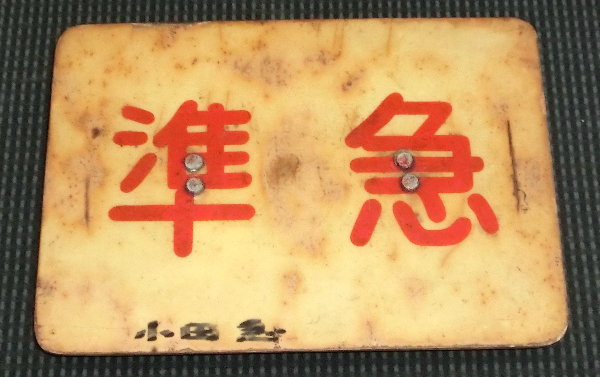 準急
小田急